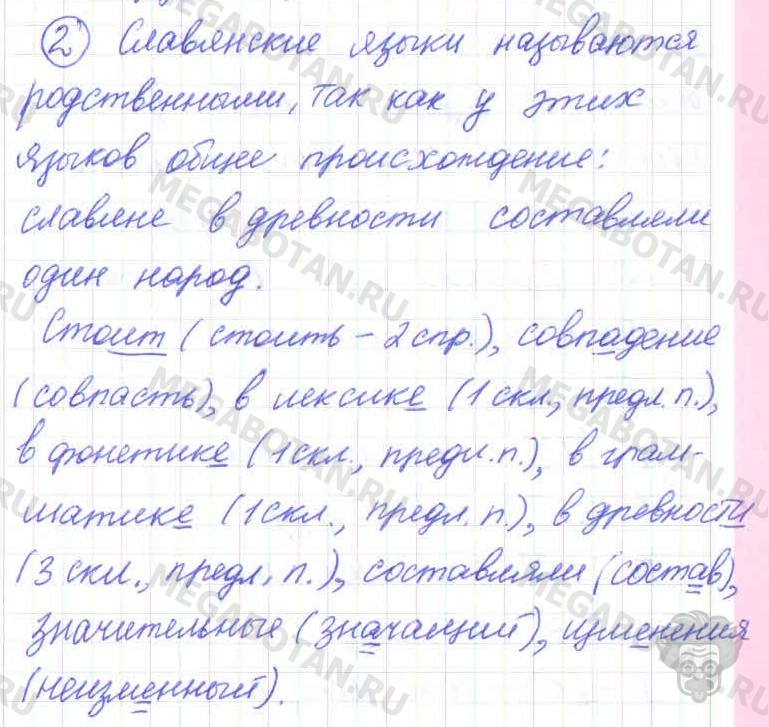 2 Славянские языки называются
родственными, так как у этих
языков общее происхождение:
славяне в древности составляли
один народ.
Стоит (стоить – 2 спр.), совпадение
(совпасть), в лексике (1 скл., предл. п.),
в фонетике (1 скл., предл. п.), в грам-
матике (1 скл., предл. п.), в древности
(3 скл., предл. п.), составляли (состав),
значительные (значащий), изменения
(неизменный).
MEGABOTAN.RU